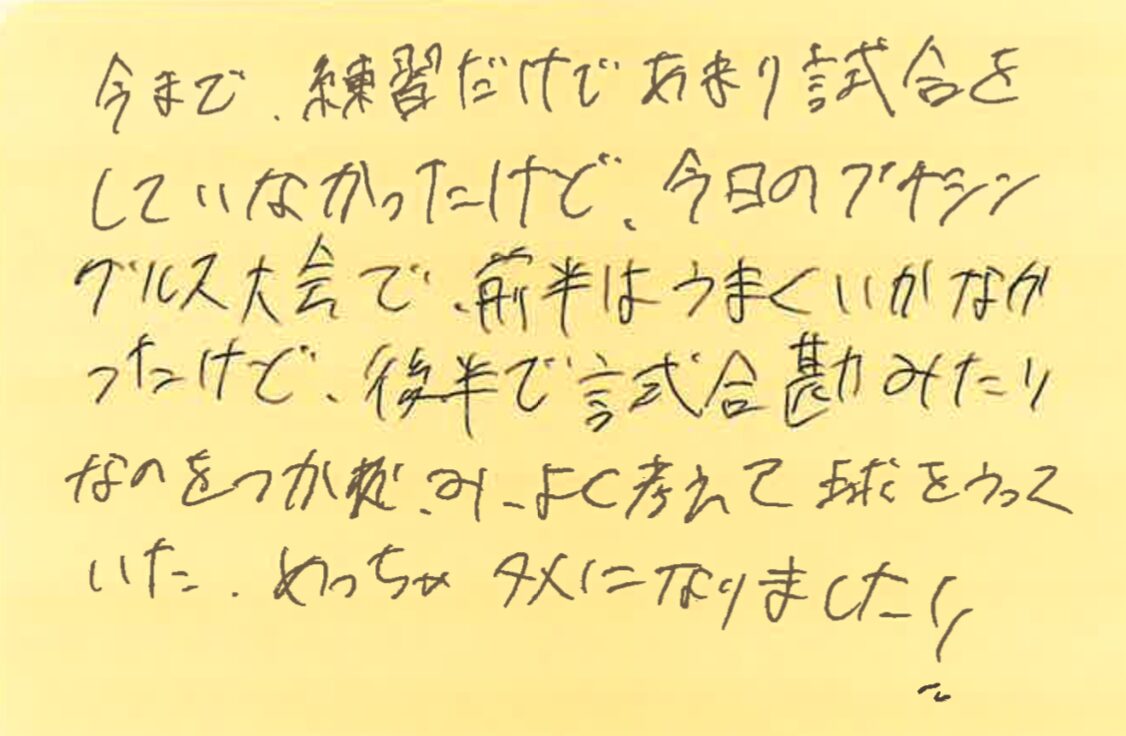 今まで、練習だけであまり試合を
していなかったけど、今日のプチシン
グルス大会で、前半はうまくいかなか
ったけど、後半で試合勘みたり
なのをつか み、よく考えて 球をうって
いた。めっちゃ タメになりました!!